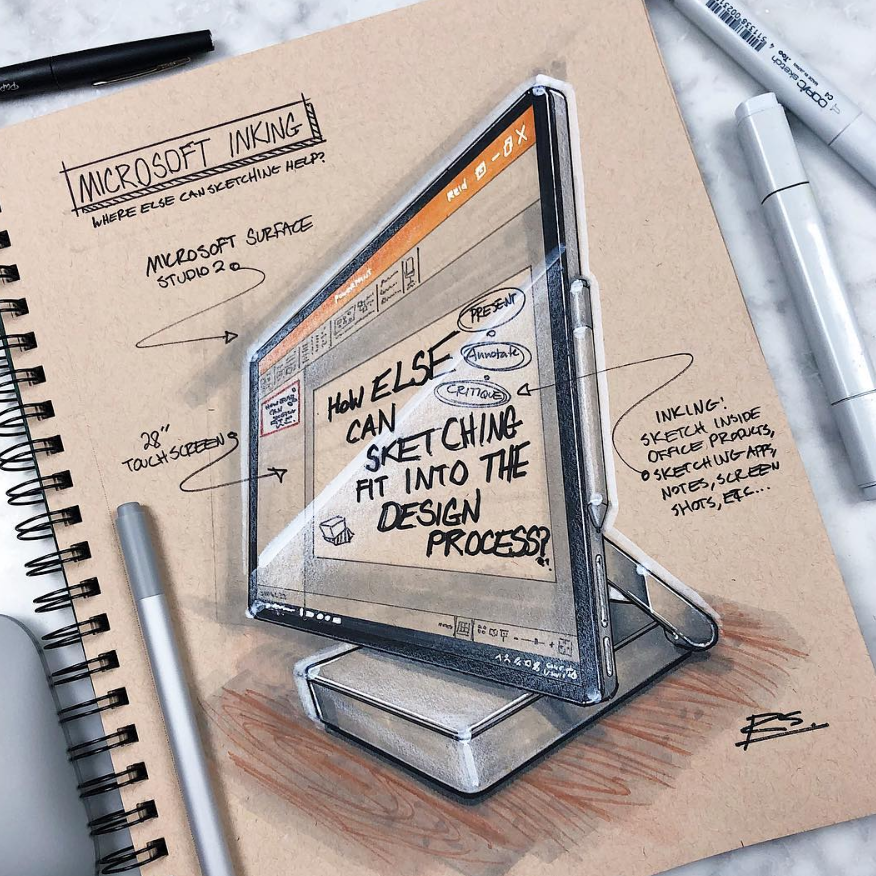 MICROSOFT INKING
WHERE ELSE CAN SKETCHING HELP?
MICROSOFT SURFACE
STUDIO 2
28"
TOUCHSCREEN
REID
POWERPOINT
PRESENT
Annotate
CRITIQUE
HOW ELSE
CAN
SKETCHING
FIT INTO THE
DESIGN
PROCESS?
INKING!
SKETCH INSIDE
OFFICE PRODUCTS,
SKETCHING APP,
NOTES, SCREEN
SHOTS, ETC...
RS.
COPIC sketch
MADE IN JAPAN
Too
C4